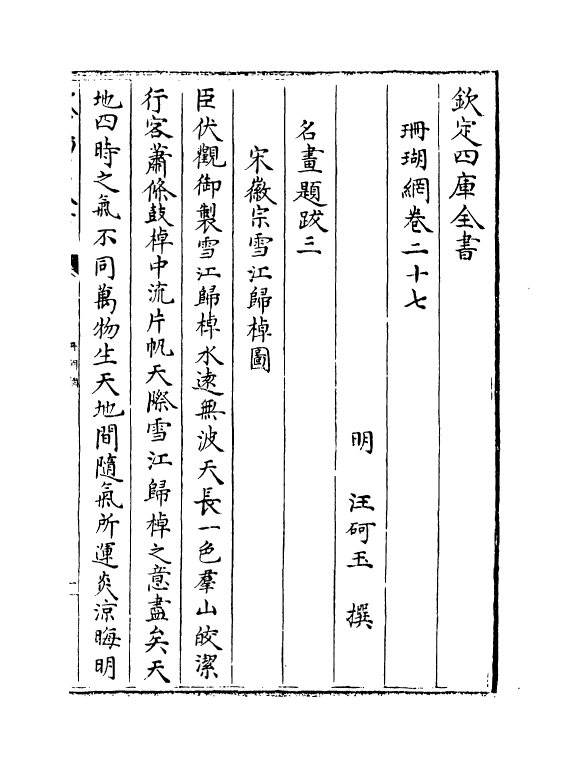 欽定四庫全書
珊瑚網卷二十七
明 汪砢玉 撰
名畫題跋三
宋徽宗雪江歸棹圖
臣伏觀御製雪江歸棹水遠無波天長一色羣山皎潔
行客蕭條鼓棹中流片帆天際雪江歸棹之意盡矣天
地四時之氣不同萬物生天地間隨氣所運炎涼晦明